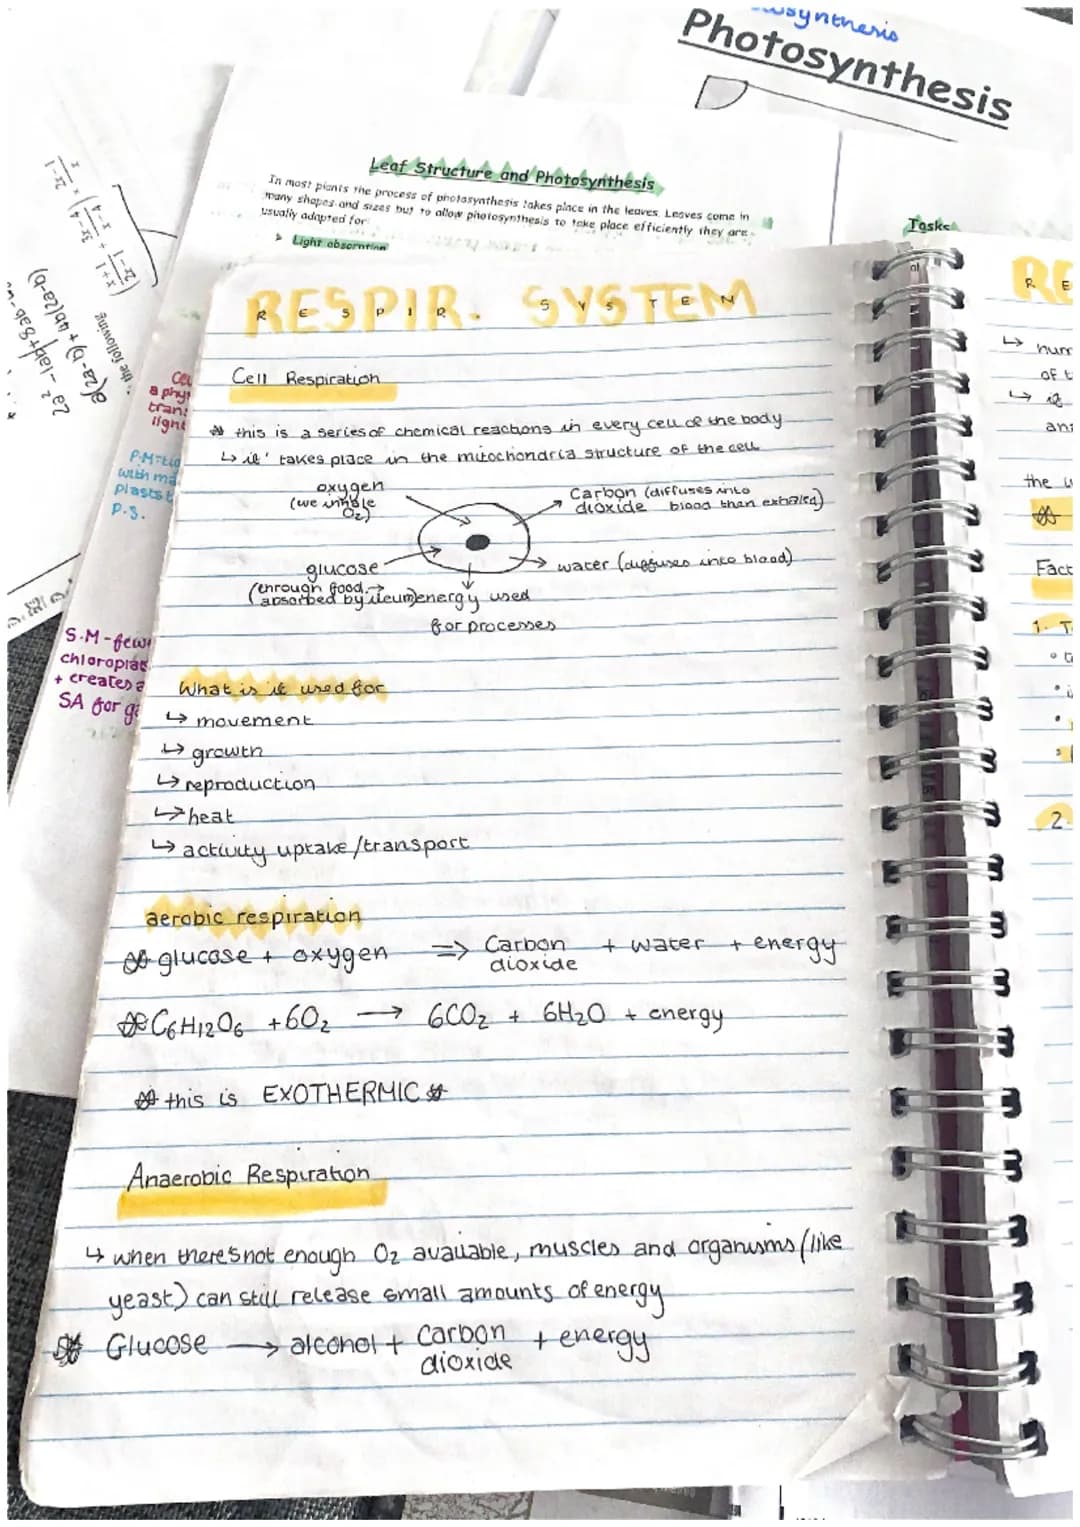 Photosynthesis
Leaf Structure and Photosynthesis
In most plants the process of photosynthesis takes place in the leaves. Leaves come in
many shapes and sizes but to allow photosynthesis to take place efficiently they are
usually adapted for:
Light absorption
Tasks
RESPIR. SYSTEM
RESPIR. SYSTEM
Cell Respiration
this is a series of chemical reactions in every cell of the body
↳ it' takes place in the mitochondria structure of the cell
oxygen
(we inhale
O₂)
Carbon (diffuses into
dioxide blood then exhaled)
glucose
(through food →
absorbed by ileum)
water (diffuses into blood)
energy used
for processes
What is it used for
↳ movement
↳ growth
↳ reproduction
↳ heat
↳ activity uptake/transport
aerobic respiration
glucose + oxygen ⇒ Carbon + water + energy
dioxide
C₆H₁₂O₆ + 6O₂ → 6CO₂ + 6H₂O + energy
this is EXOTHERMIC
Anaerobic Respiration
↳ when there's not enough O₂ available, muscles and organisms (like
yeast) can still release small amounts of energy
Glucose → alcohol + Carbon + energy
dioxide
P.S.
S.M - few
+ creates a
SA for
the following
a(2a-b) + 4b(2a-b)
RE
↳
of t
the
Fact
1. T
2.